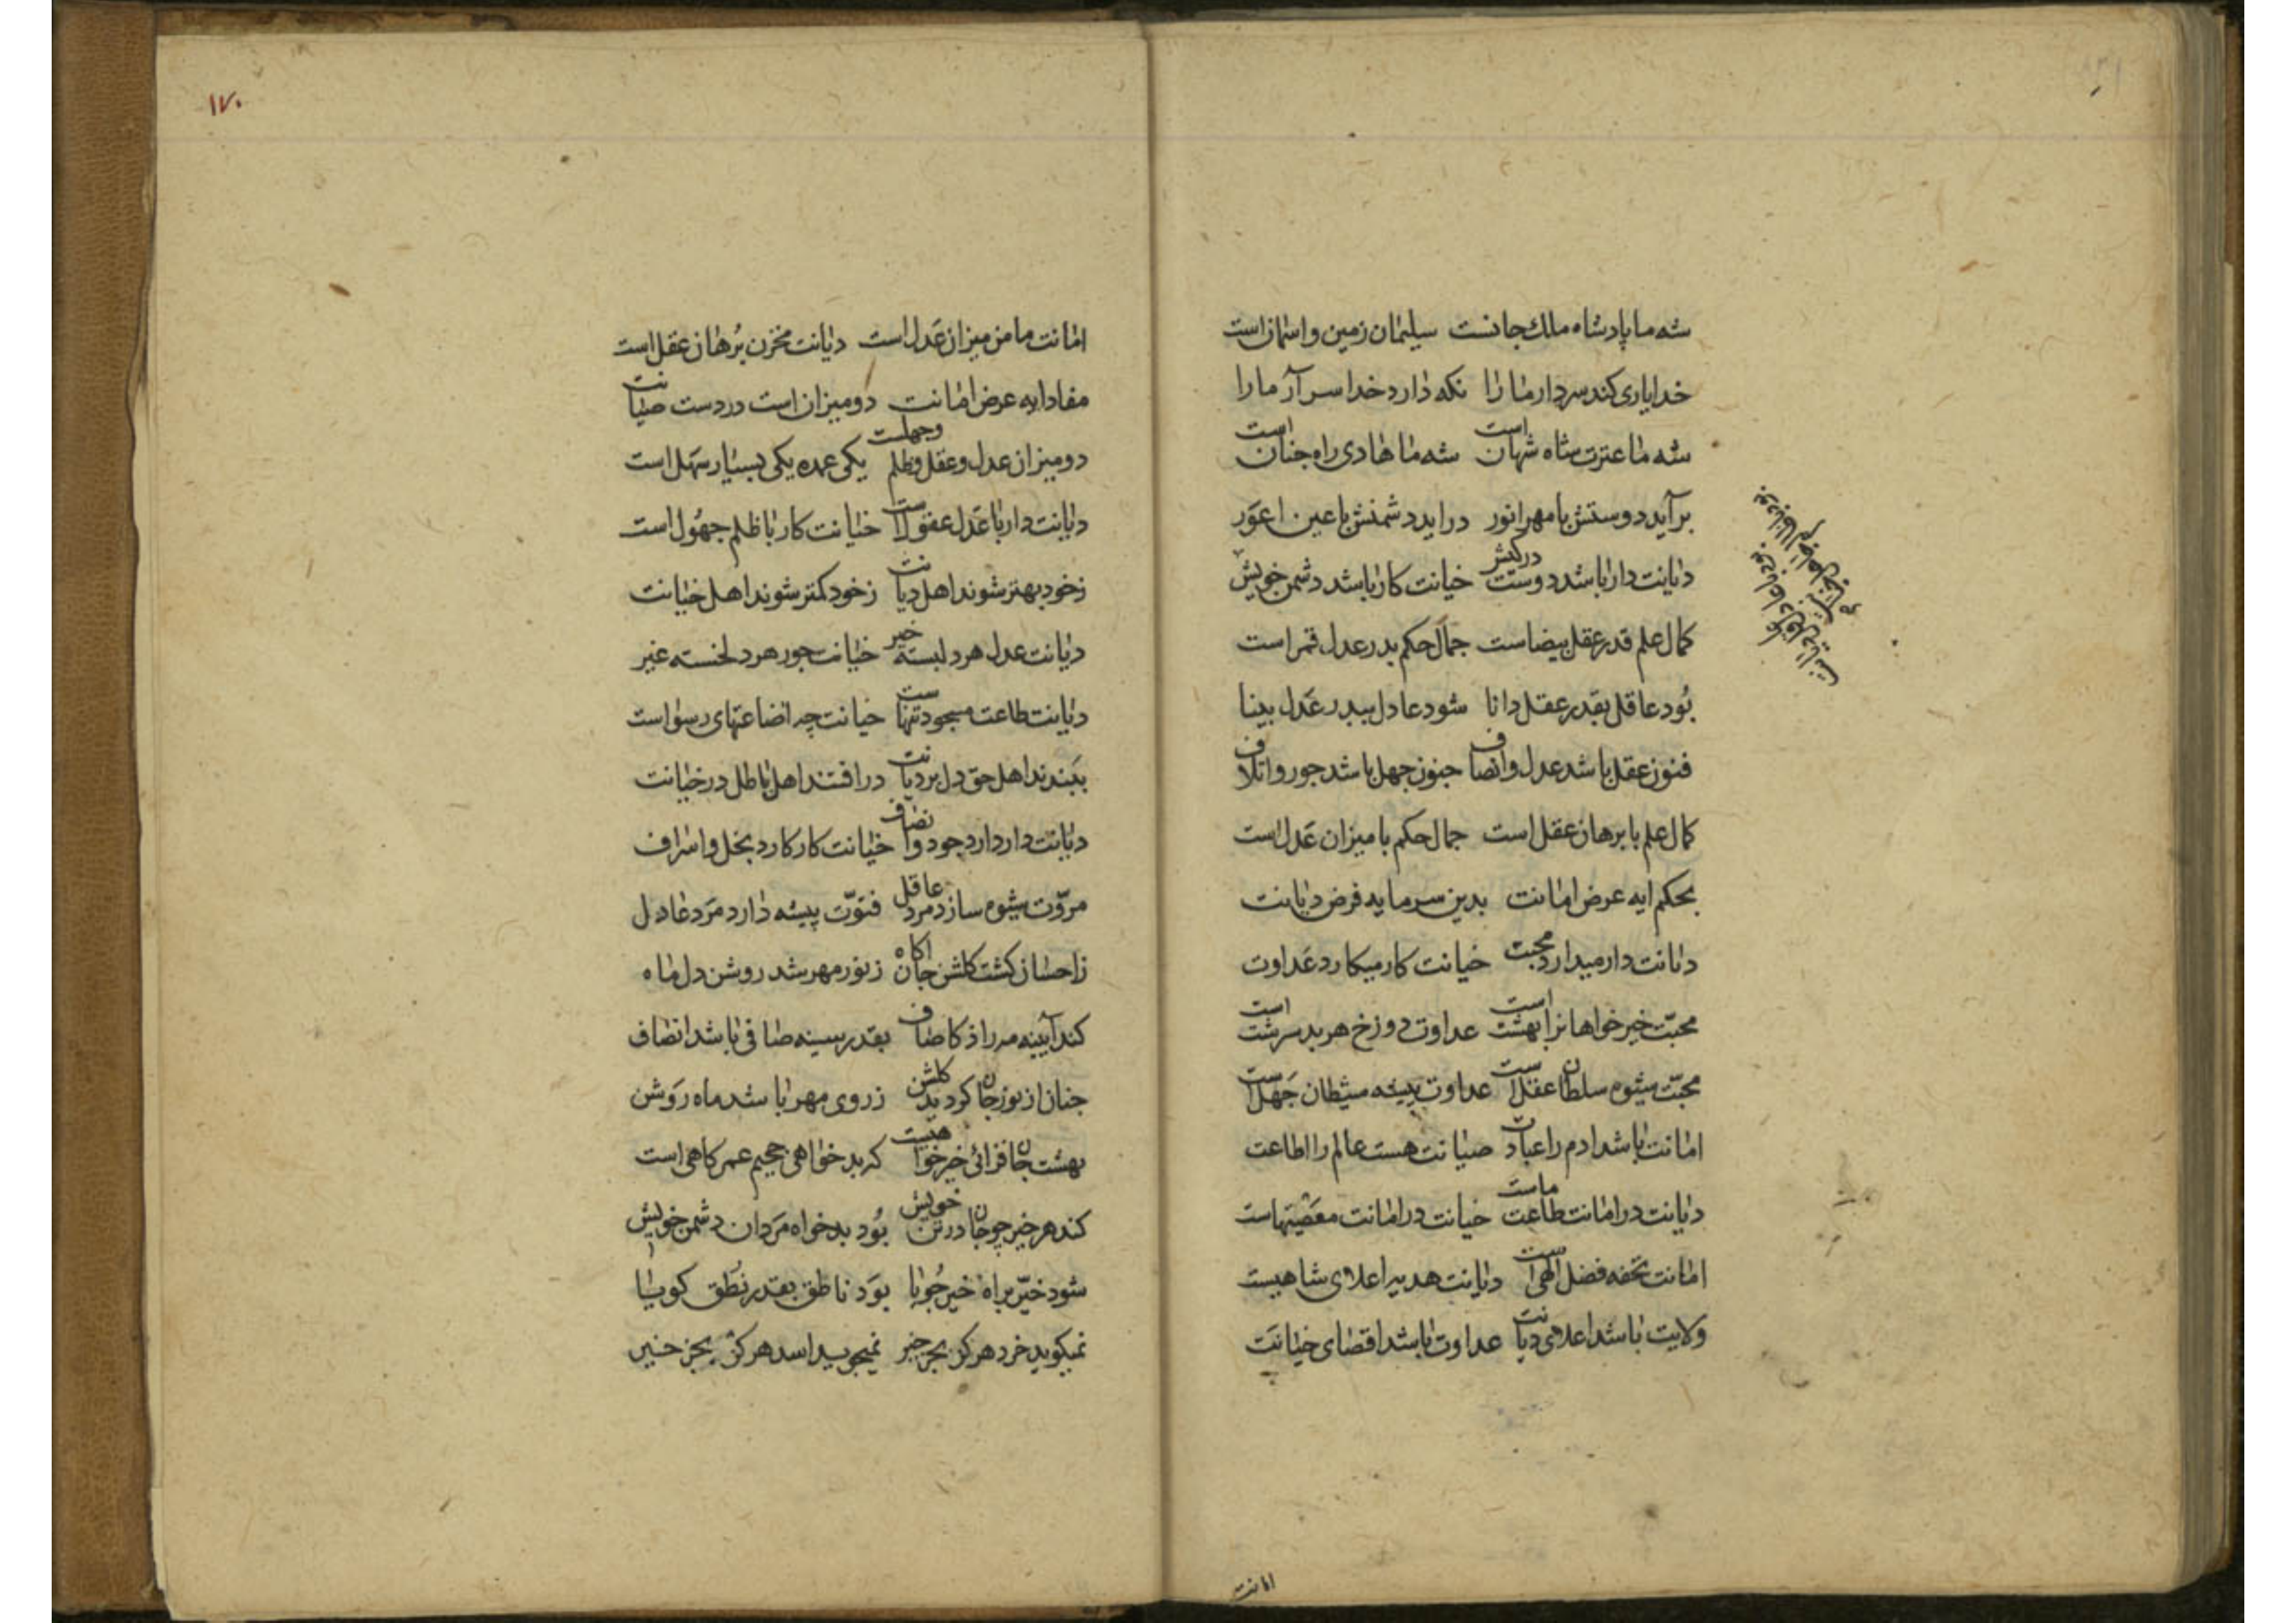 شه ما پادشاه ملك جانست سلیمان زمین و اسمان است
خدا یاری کند سردار ما را نکه دارد خدا سر آر ما را
شه ما عترت شاه شهان است شه ما هادی راه جنان است
برآید دوستش با مهر انور دراید دشمنش با عین اعور
دیانت دار باشد دوست در کیش خیانت کار باشد دشمن خویش
کمال علم قدر عقل بیضاست جمال حکم بدر عدل قمر است
بُود عاقل بقدر عقل دانا شود عادل ببدر عَدل بینا
فنون عقل باشد عدل و انصاف جنون جهل باشد جور و اتلاف
کمال علم با برهان عقل است جمال حکم با میزان عَدل است
بحکم ایه عرض امانت بدین سرمایه فرض دیانت
دیانت دار میدارد محبت خیانت کار میکارد عَداوت
محبّت خیر خواهانرا بهشت است عداوت دوزخ هر بد سرشت است
محبّت شیوه سلطان عقل است عداوت پیشه شیطان جَهل است
امانت باشد ادم را عبادت صیانت هست عالم را اطاعت
دیانت در امانت طاعت ماست خیانت در امانت معصَیتهاست
امانت تحفه فضل الهی است دیانت هدیه اعلای شاهیست
ولایت باشد اعلای دیانت عداوت باشد اقصای خیانَت
امانت
۱۷۰
امانت مامن میزان عَدل است دیانت مخزن بُرهان عقل است
مفاد ایه عرض امانت دو میزان است در دست صیانت
دو میزان عدل و عقل و ظلم و جهلست یکی عمده یکی بسیار سَهل است
دیانت دار با عَدل عقولاست خیانت کار با ظلم جهُول است
زخود بهتر شوند اهل دیانت زخود کمتر شوند اهل خیانت
دیانت عدل هر دلبسته خیر خیانت جور هر دلخسته غیر
دیانت طاعت مسجود تنهاست خیانت چه اضاعتهای رسواست
ببَندند اهل حق دل بر دیانت درافتند اهل باطل در خیانت
دیانت دار دارد جود و انصاف خیانت کار کارد بخل و اسراف
مروّت شیوه سازد مرد عاقل فتوّت پیشه دارد مَرد عادل
زاحسان کشت کلشن جان اکاه زنور مهر شد روشن دل ماه
کند آیینه مه را ذکا صاف بقدر سینه صافی باشد انصاف
جنان از نور جان کرد بدن کلشن زروی مهر باشد ماه رَوشن
بهشت جان فزائی خیر خواهیست که بد خواهی جحیم عمر کاهی است
کند هر خیر چو جان در تن خویش بُود بد خواه مَردان دشمن خویش
شود خیّر براه خیر جُویا بوَد ناطق بقدر نُطق کویا
نمیکوید خرد هرکز بجز خیر نمیجوید اسد هرکز بجز خیر